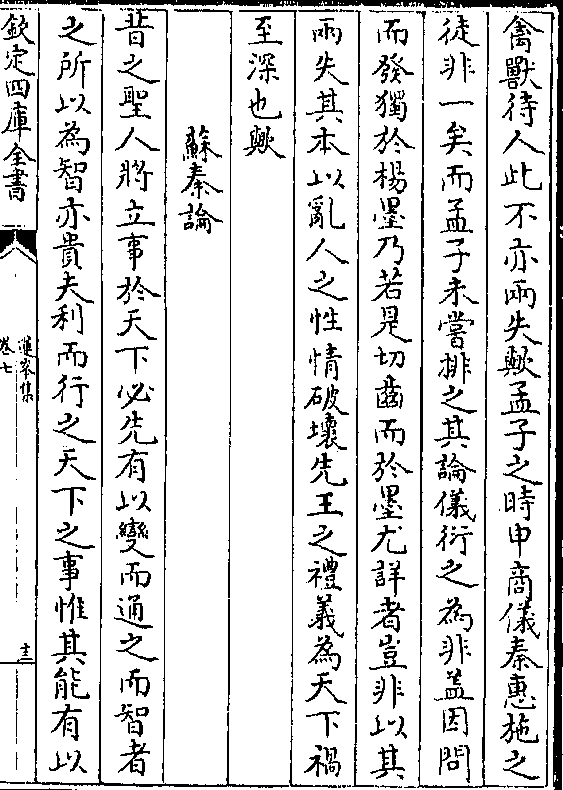 禽獸待人此不亦兩失歟孟子之時申商儀秦惠施之
徒非一矣而孟子未嘗排之其論儀衍之為非蓋因問
而發獨於楊墨乃若是切齒而於墨尤詳者豈非以其
兩失其本以亂人之性情破壞先王之禮義為天下禍
至深也歟
蘇秦論
昔之聖人將立事於天下必先有以變而通之而智者
之所以為智亦貴夫利而行之天下之事惟其能有以
欽定四庫全書
卷七
十三